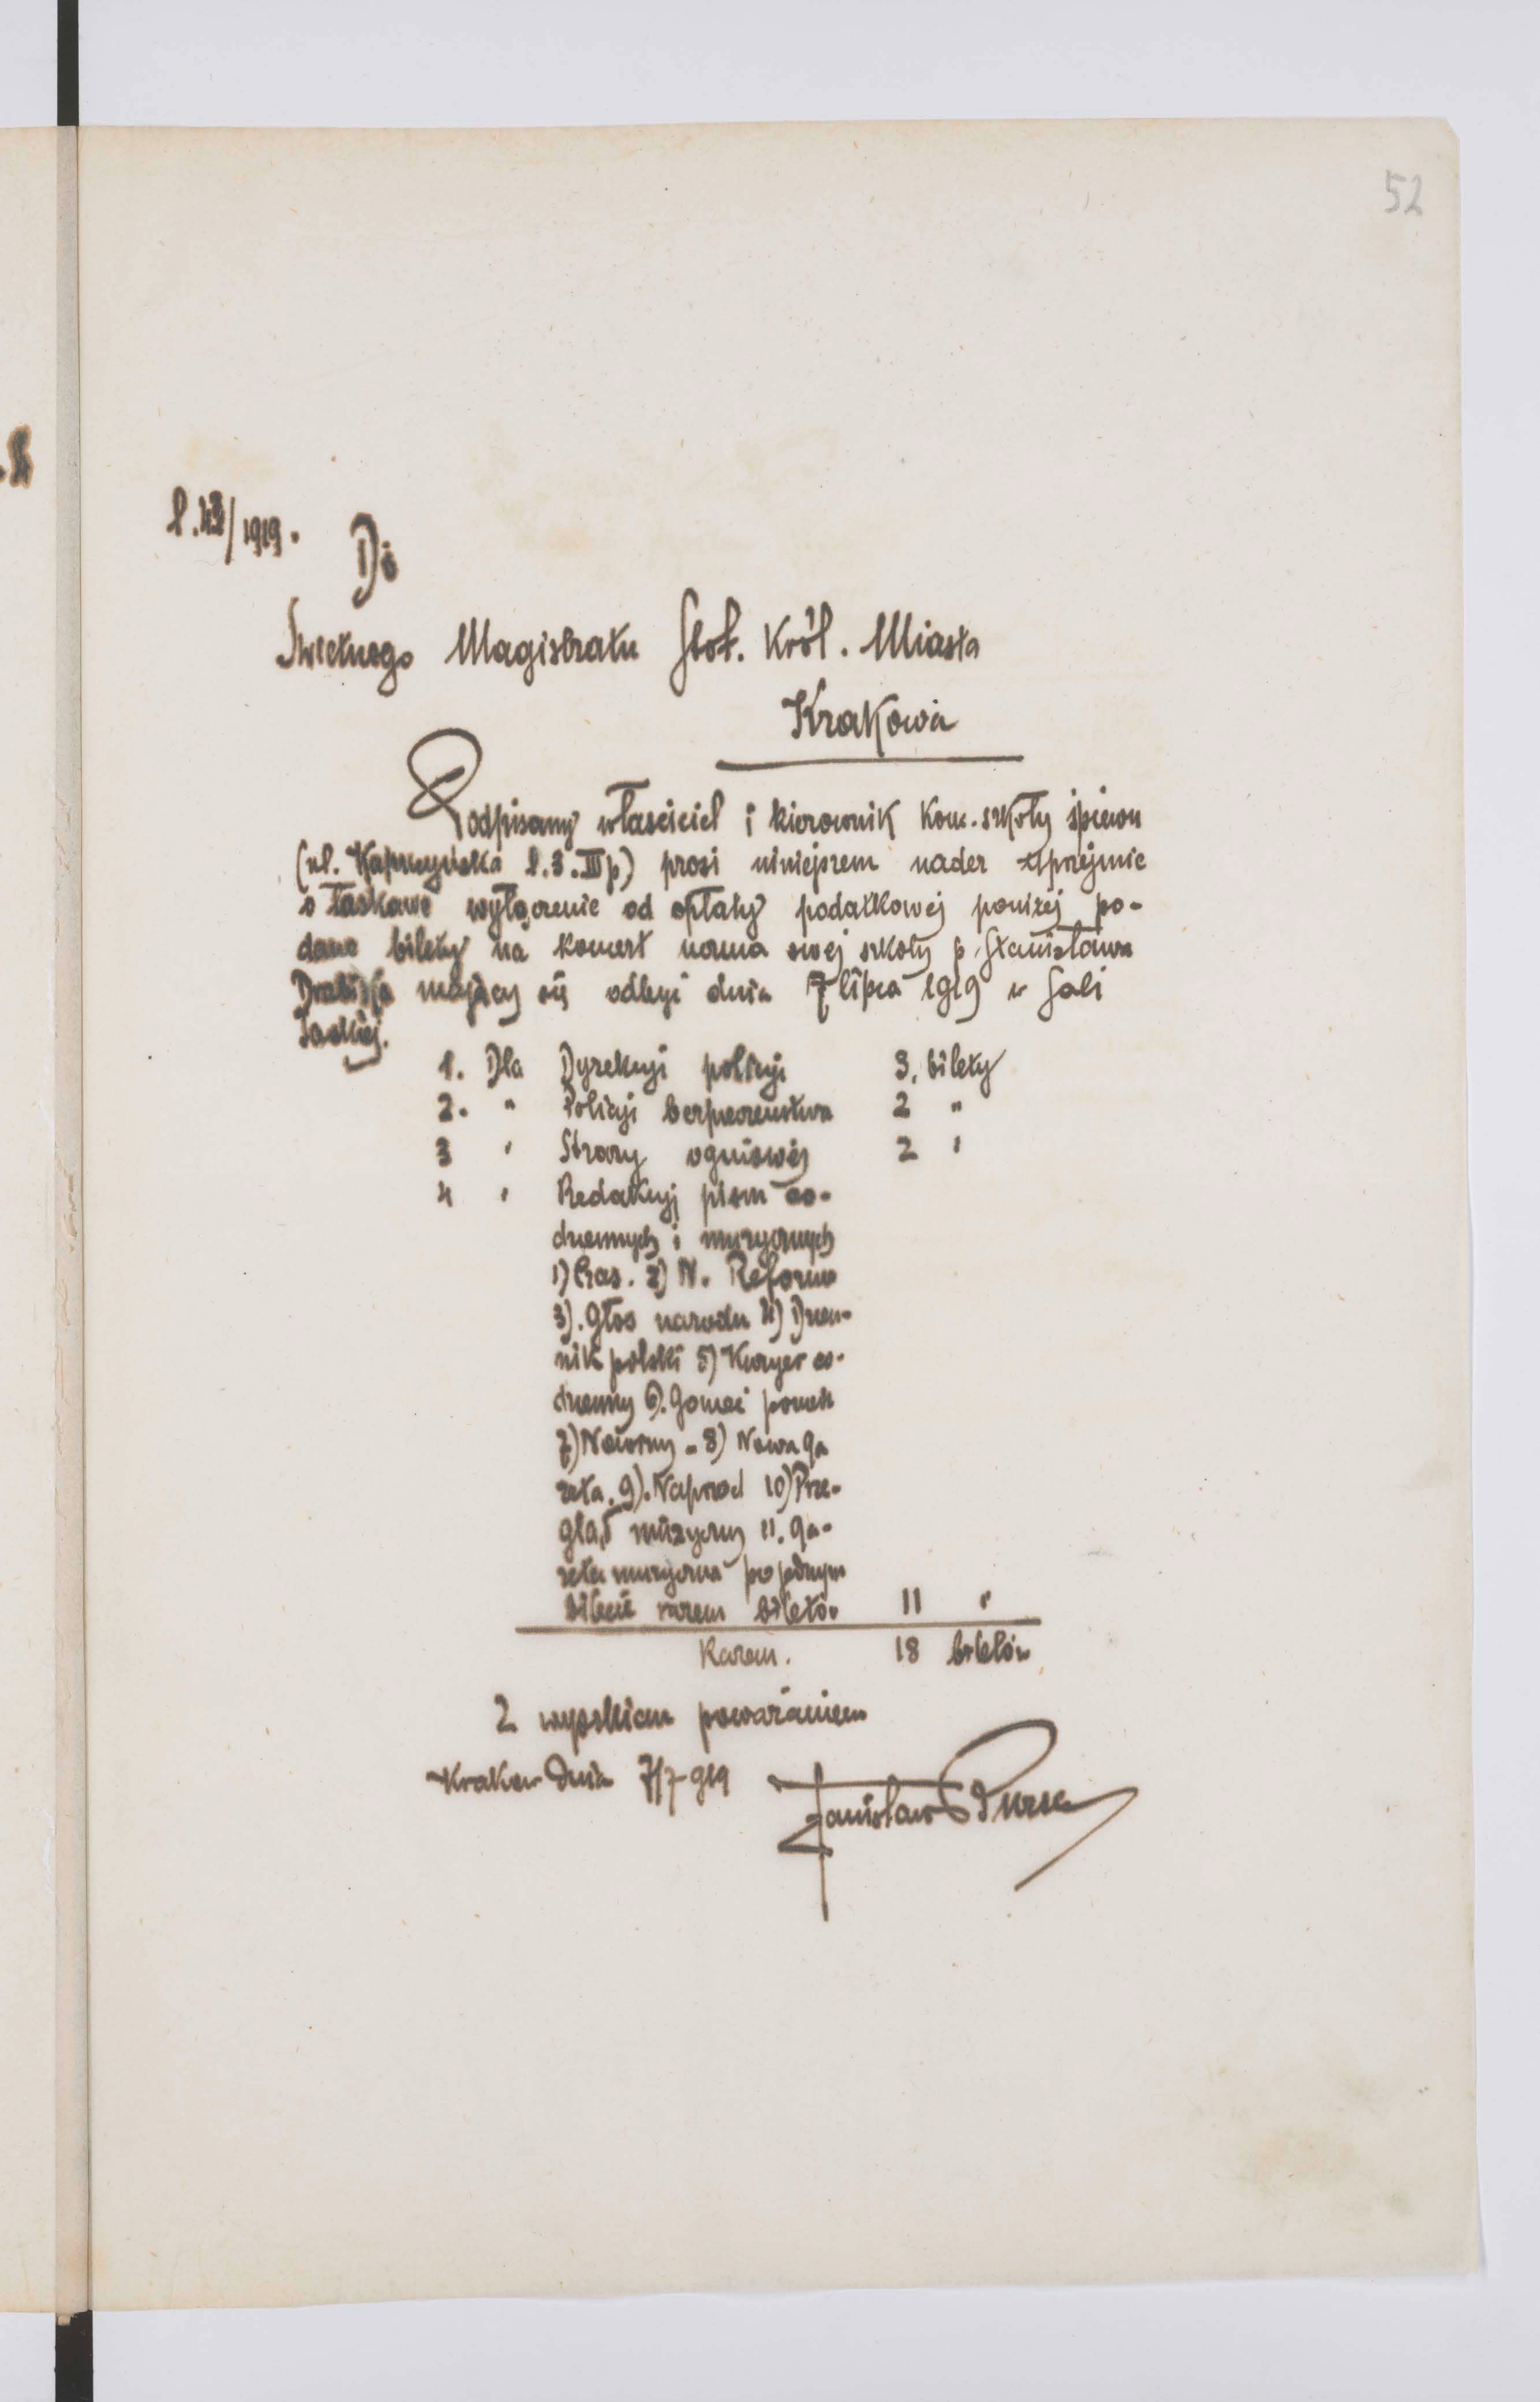 52
l. 42/1919.
Do
Swietnego Magistratu Stoł. Król. Miasta
Krakowa
Podpisany właściciel i kierownik konc. szkoły śpiewu
(ul. l. 3. III p) prosi niniejszem nader uprzejmie
o łaskawe wyłączenie od opłaty podatkowej poniżej po-
dane bilety na koncert ucznia swej szkoły p. Stanisława
mający się odbyć dnia 7 lipca 1919 w Sali
Saskiej.
1. Dla Dyrekcyi policyi 3. bilety
2. " Policyi bezpieczeństwa 2 "
3 " Straży ogniowej 2 "
4 " Redakcyj pism co-
dziennych i muzycznych
1) Czas. 2) N. Reforma
3). Głos narodu 4) Dzien-
nik polski 5) Kuryer co-
dzienny 6). Goniec
7) 8) Nowa ga
zeta. 9). Naprzod 10) Prze-
gląd muzyczny 11. ga-
zeta muzyczna po jednym
bilecie razem biletów 11 "
Razem. 18 biletów
Z wysokiem poważaniem
Krakow dnia 7/7-919 Stanisław Bursa